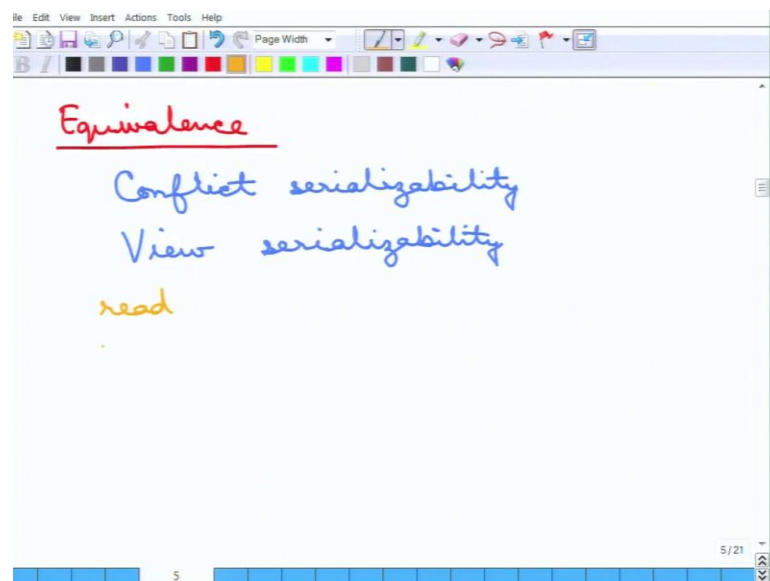 ile Edit View Insert Actions Tools Help
Page Width
B I
Equivalence
Conflict serializability
View serializability
read
5/21
5